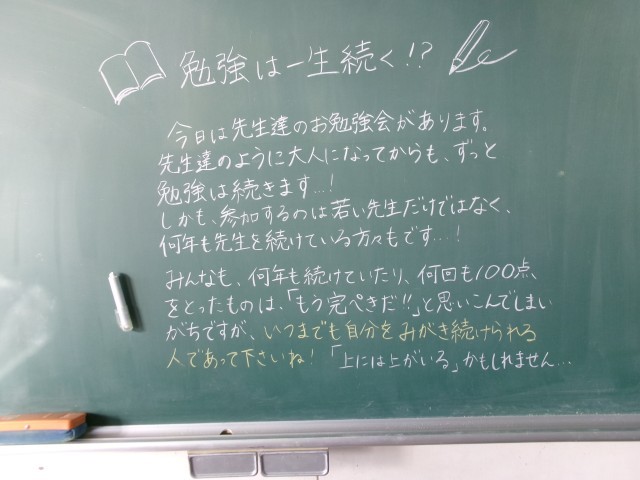 勉強は一生続く!?
今日は先生達のお勉強会があります。
先生達のように大人になってからも、ずっと
勉強は続きます…!
しかも、参加するのは若い先生だけではなく、
何年も先生を続けている方々もです…!
みんなも、何年も続けていたり、何回も100点、
をとったものは、「もう完ぺきだ!!」と思いこんでしまい
がちですが、いつまでも自分をみがき続けられる
人であって下さいね!「上には上がいる」かもしれません…